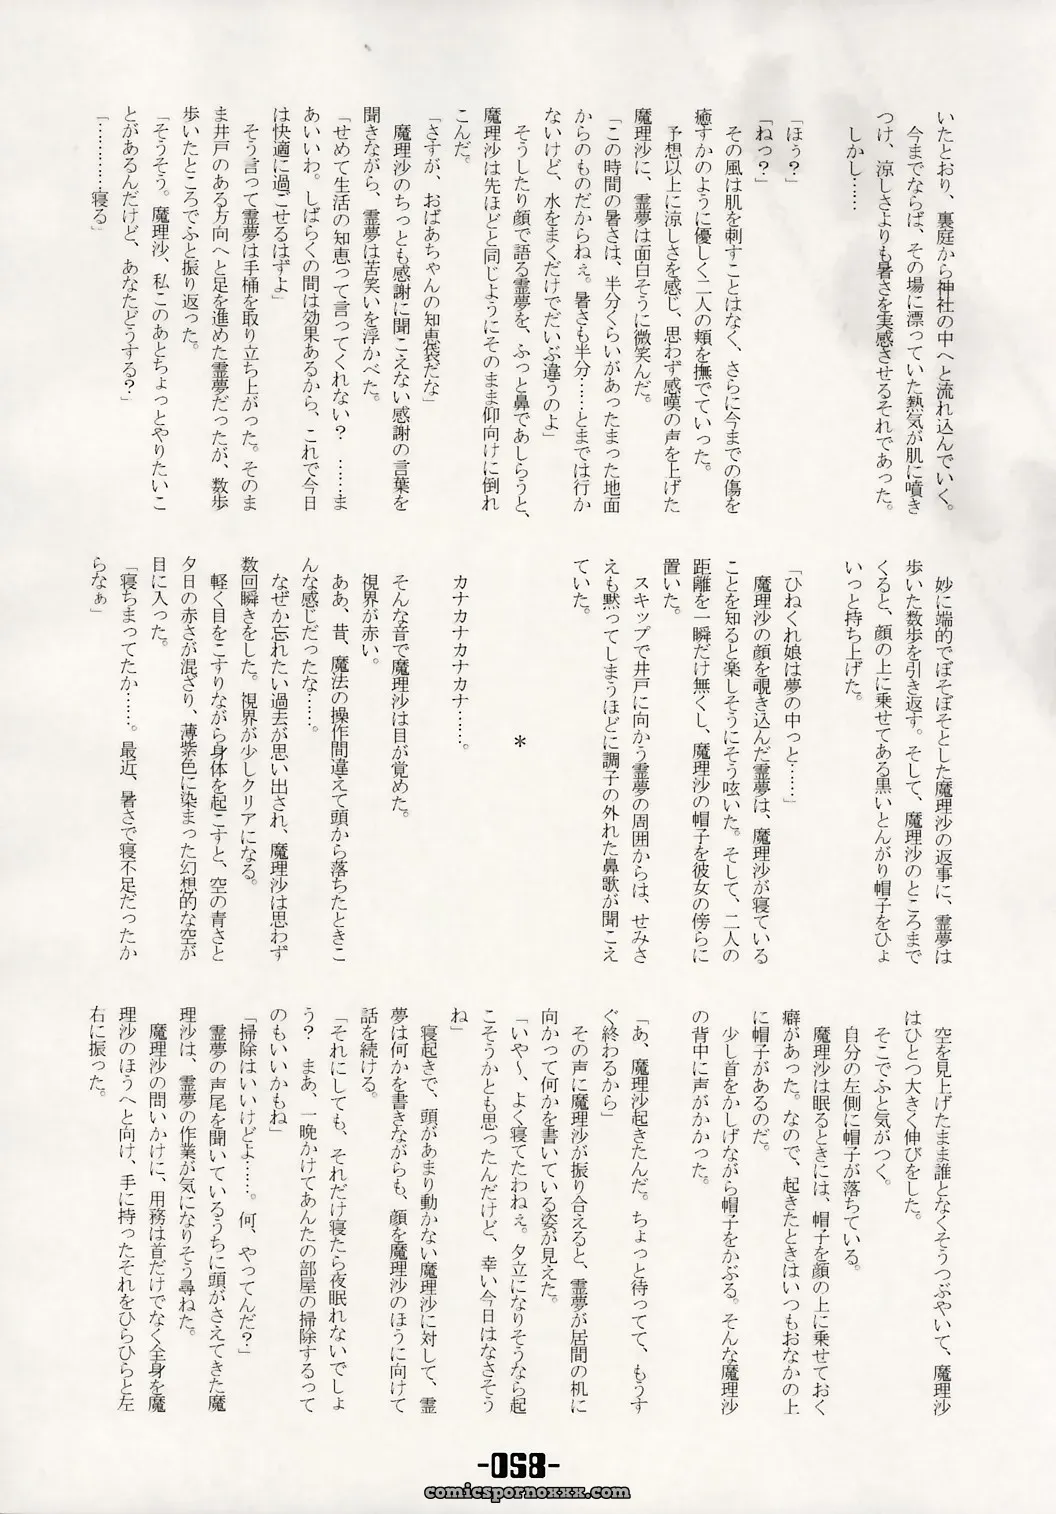 いたとおり、裏庭から神社の中へと流れ込んでいく。
今までならば、その場に漂っていた熱気が肌に噴き
つけ、涼しさよりも暑さを実感させるそれであった。
しかし……
「ほぅ？」
「ねっ？」
その風は肌を刺すことはなく、さらに今までの傷を
癒すかのように優しく二人の頬を撫でていった。
予想以上に涼しさを感じ、思わず感嘆の声を上げた
魔理沙に、霊夢は面白そうに微笑んだ。
「この時間の暑さは、半分くらいがあったまった地面
からのものだからねぇ。暑さも半分……とまでは行か
ないけど、水をまくだけでだいぶ違うのよ」
そうしたり顔で語る霊夢を、ふっと鼻であしらうと、
魔理沙は先ほどと同じようにそのまま仰向けに倒れ
こんだ。
「さすが、おばあちゃんの知恵袋だな」
魔理沙のちっとも感謝に聞こえない感謝の言葉を
聞きながら、霊夢は苦笑いを浮かべた。
「せめて生活の知恵って言ってくれない？　……ま
あいいわ。しばらくの間は効果あるから、これで今日
は快適に過ごせるはずよ」
そう言って霊夢は手桶を取り立ち上がった。そのま
ま井戸のある方向へと足を進めた霊夢だったが、数歩
歩いたところでふと振り返った。
「そうそう。魔理沙、私このあとちょっとやりたいこ
とがあるんだけど、あなたどうする？」
「…………寝る」
妙に端的でぼそぼそとした魔理沙の返事に、霊夢は
歩いた数歩を引き返す。そして、魔理沙のところまで
くると、顔の上に乗せてある黒いとんがり帽子をひょ
いっと持ち上げた。
「ひねくれ娘は夢の中っと……」
魔理沙の顔を覗き込んだ霊夢は、魔理沙が寝ている
ことを知ると楽しそうにそう呟いた。そして、二人の
距離を一瞬だけ無くし、魔理沙の帽子を彼女の傍らに
置いた。
スキップで井戸に向かう霊夢の周囲からは、せみさ
えも黙ってしまうほどに調子の外れた鼻歌が聞こえ
ていた。
＊
カナカナカナカナ……。
そんな音で魔理沙は目が覚めた。
視界が赤い。
ああ、昔、魔法の操作間違えて頭から落ちたときこ
んな感じだったな……。
なぜか忘れたい過去が思い出され、魔理沙は思わず
数回瞬きをした。視界が少しクリアになる。
軽く目をこすりながら身体を起こすと、空の青さと
夕日の赤さが混ざり、薄紫色に染まった幻想的な空が
目に入った。
「寝ちまってたか……。最近、暑さで寝不足だったか
らなぁ」
空を見上げたまま誰となくそうつぶやいて、魔理沙
はひとつ大きく伸びをした。
そこでふと気がつく。
自分の左側に帽子が落ちている。
魔理沙は眠るときには、帽子を顔の上に乗せておく
癖があった。なので、起きたときはいつもおなかの上
に帽子があるのだ。
少し首をかしげながら帽子をかぶる。そんな魔理沙
の背中に声がかかった。
「あ、魔理沙起きたんだ。ちょっと待ってて、もうす
ぐ終わるから」
その声に魔理沙が振り合えると、霊夢が居間の机に
向かって何かを書いている姿が見えた。
「いや～、よく寝てたわねぇ。夕立になりそうなら起
こそうかとも思ったんだけど、幸い今日はなさそう
ね」
寝起きで、頭があまり動かない魔理沙に対して、霊
夢は何かを書きながらも、顔を魔理沙のほうに向けて
話を続ける。
「それにしても、それだけ寝たら夜眠れないでしょ
う？　まあ、一晩かけてあんたの部屋の掃除するって
のもいいかもね」
「掃除はいいけどよ……。何、やってんだ？」
霊夢の声尾を聞いているうちに頭がさえてきた魔
理沙は、霊夢の作業が気になりそう尋ねた。
魔理沙の問いかけに、用務は首だけでなく全身を魔
理沙のほうへと向け、手に持ったそれをひらひらと左
右に振った。
-058-
comicspornoxxx.com